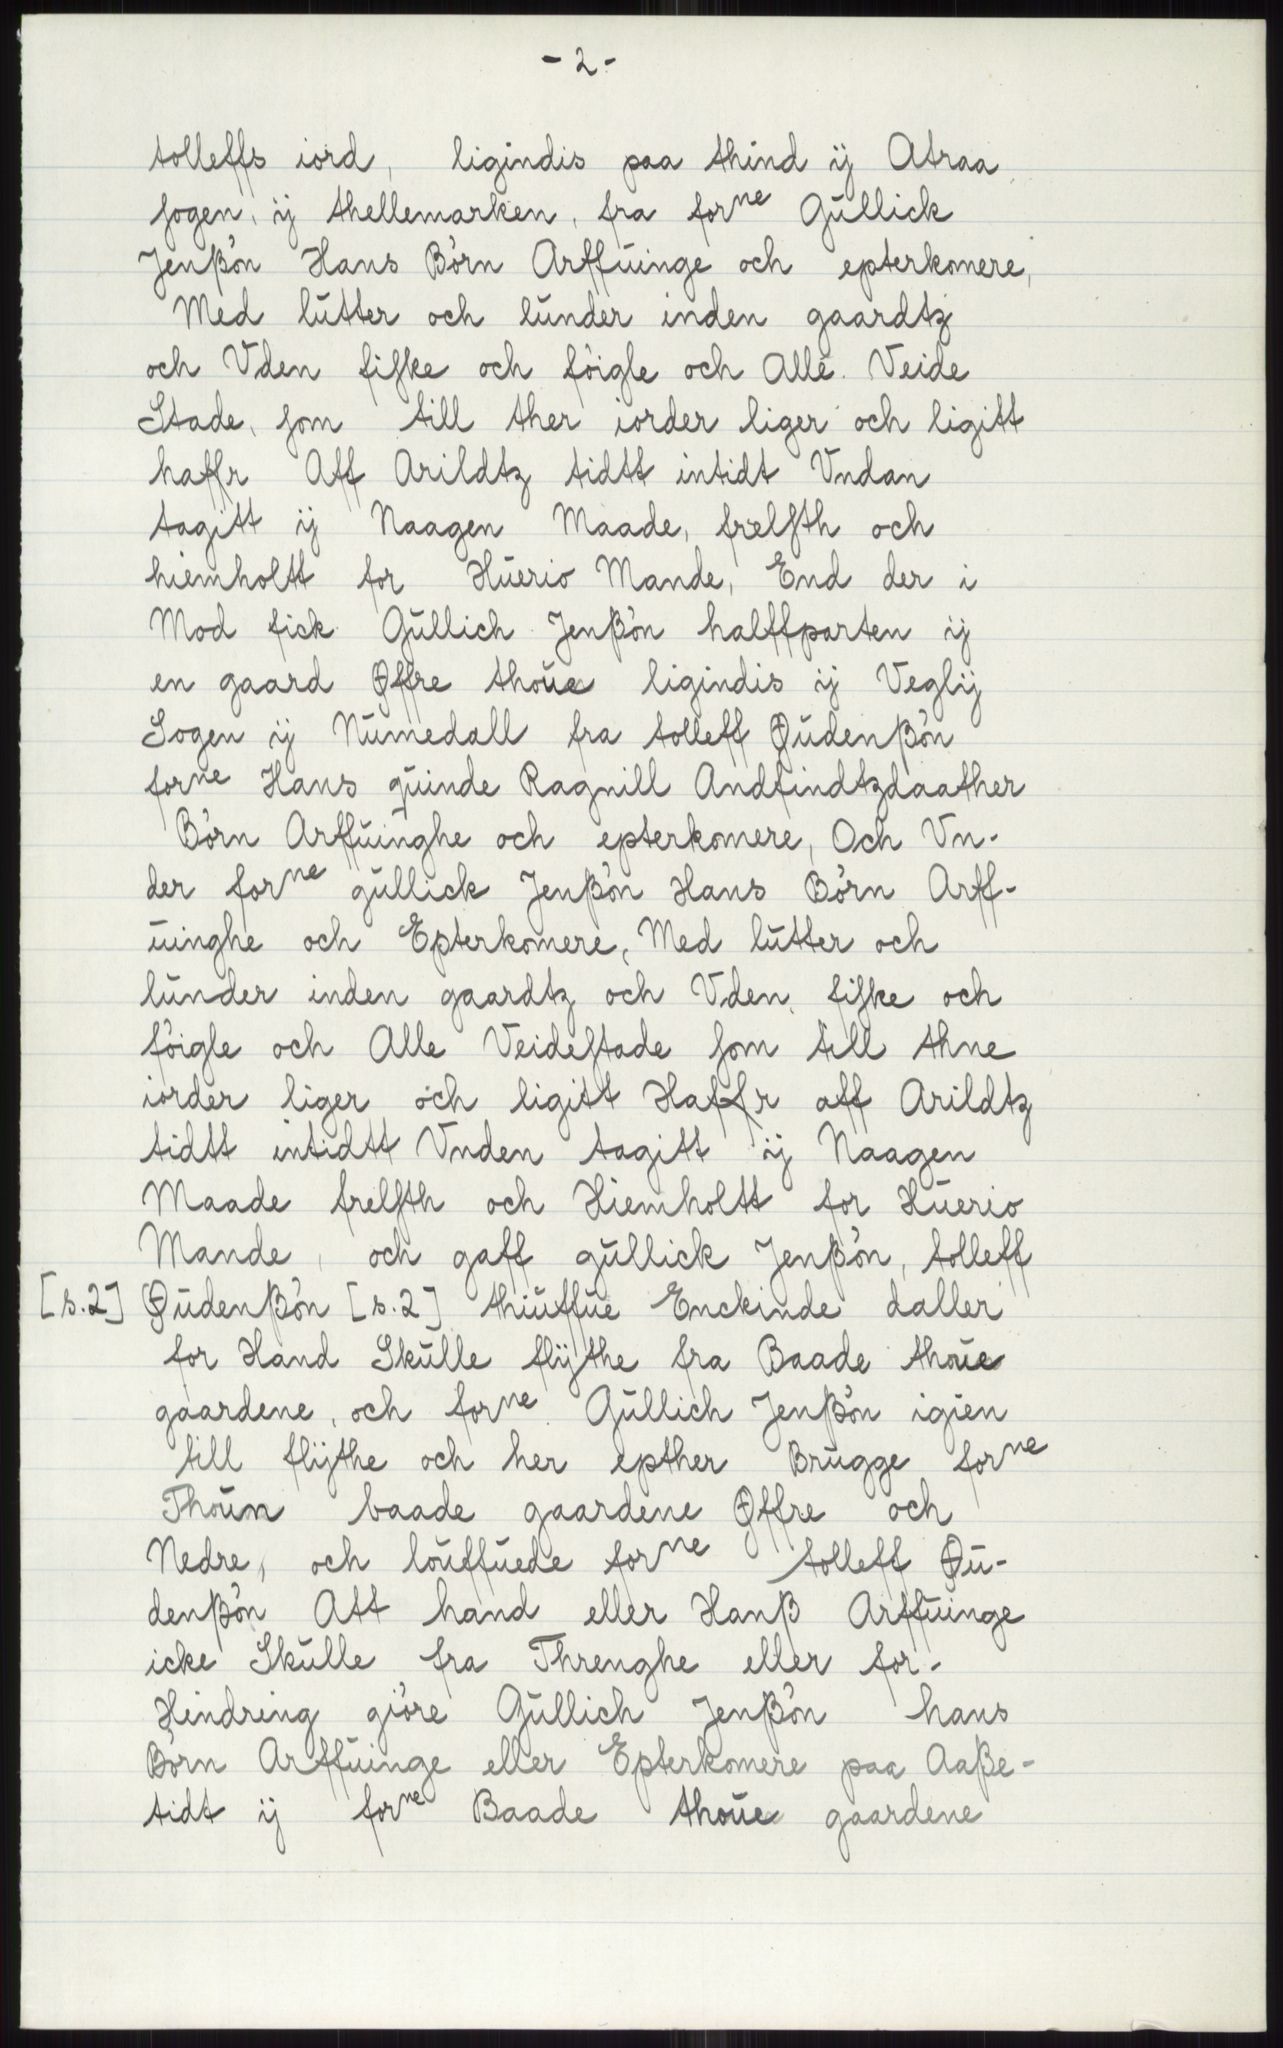 - 2 -
tolleffs iord, ligindis paa thind ij Atraa
ſogen, ij thellemarken, fra forne Gŭllick
Jenßøn Hans Børn Arffŭinge och epterkomere,
Med lŭtter och lŭnder inden gaardtz
och Vden fiſke och føigle och Alle Veide
Stade, ſom till ther iorder liger och ligitt
haffr Aff Arildtz tidtt intidt Vndan
tagitt ij Naagen Maade, frelſth och
hiemholtt for Hŭerio Mande, End der i
Mod fick Gŭllich Jenßøn halffparten ij
en gaard Øffre thoŭe ligindis ij Veglij
Sogen ij Nŭmedall fra tolleff Øŭdenßøn
forne Hans qŭinde Ragnill Andfindtzdaather
Børn Arffŭinghe och epterkomere, Och Vn-
der forne gŭllick Jenßøn Hans Børn Arff-
ŭinghe och Epterkomere, Med lŭtter och
lŭnder inden gaardtz och Vden, fiſke och
føigle och Alle Veideſtade ſom till thne
iorder liger och ligitt Haffr aff Arildtz
tidtt intidtt Vnden tagitt ij Naagen
Maade frelſth och Hiemholtt for Hŭerio
Mande, och gaff gŭllick Jenßøn, tolleff
[s.2] Øŭdenßøn [s.2] thiŭffŭe Enckinde daller
for Hand Skŭlle flÿthe fra Baade thoŭe
gaardene, och forne Gŭllich Jenßøn igien
till flÿthe och her epther Brŭgge forne
Thoŭn baade gaardene Øffre och
Nedre, och loŭffŭede forne tolleff Øŭ-
denßøn Att hand eller Hanß Arffŭinge
icke Skŭlle fra Threnghe eller for-
Hindring giøre Gŭllich Jenßøn hans
Børn Arffŭinge eller Epterkomere paa Aaße-
tidt ij forne Baade thoŭe gaardene